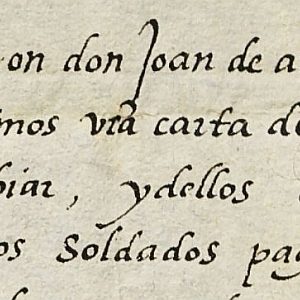 on don Joan de a
mos vrã carta de
biar, ydellos
os Soldados pag